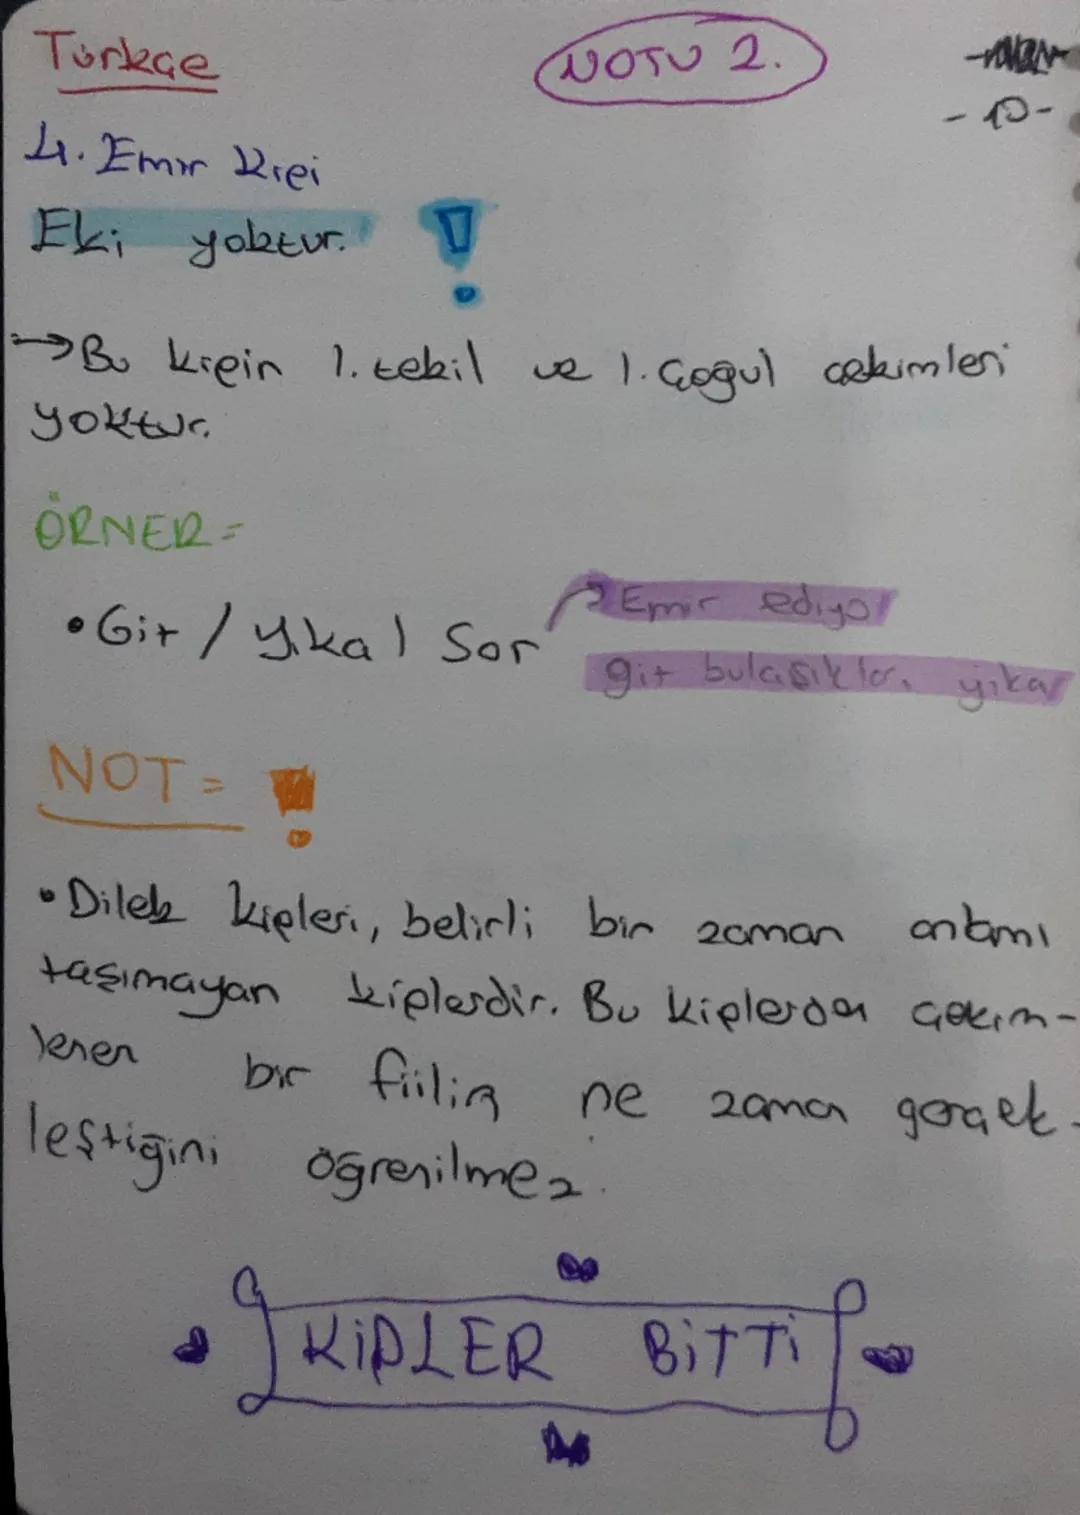 Türkçe
NOTU 2.
- 10 -
4. Emir Kipi
Eki yoktur. !
→ Bu kipin 1. tekil ve 1. Çoğul çekimleri
yoktur.
ÖRNEK =
• Git / Yıka / Sor
Emir ediyor
git bulaşıkları yıka
NOT = !
• Dilek kipleri, belirli bir zaman anlamı
taşımayan kiplerdir. Bu kiplerden çekim-
lenen bir fiilin ne zaman gerçek-
leştiğini öğrenilmez.
KİPLER BİTTİ